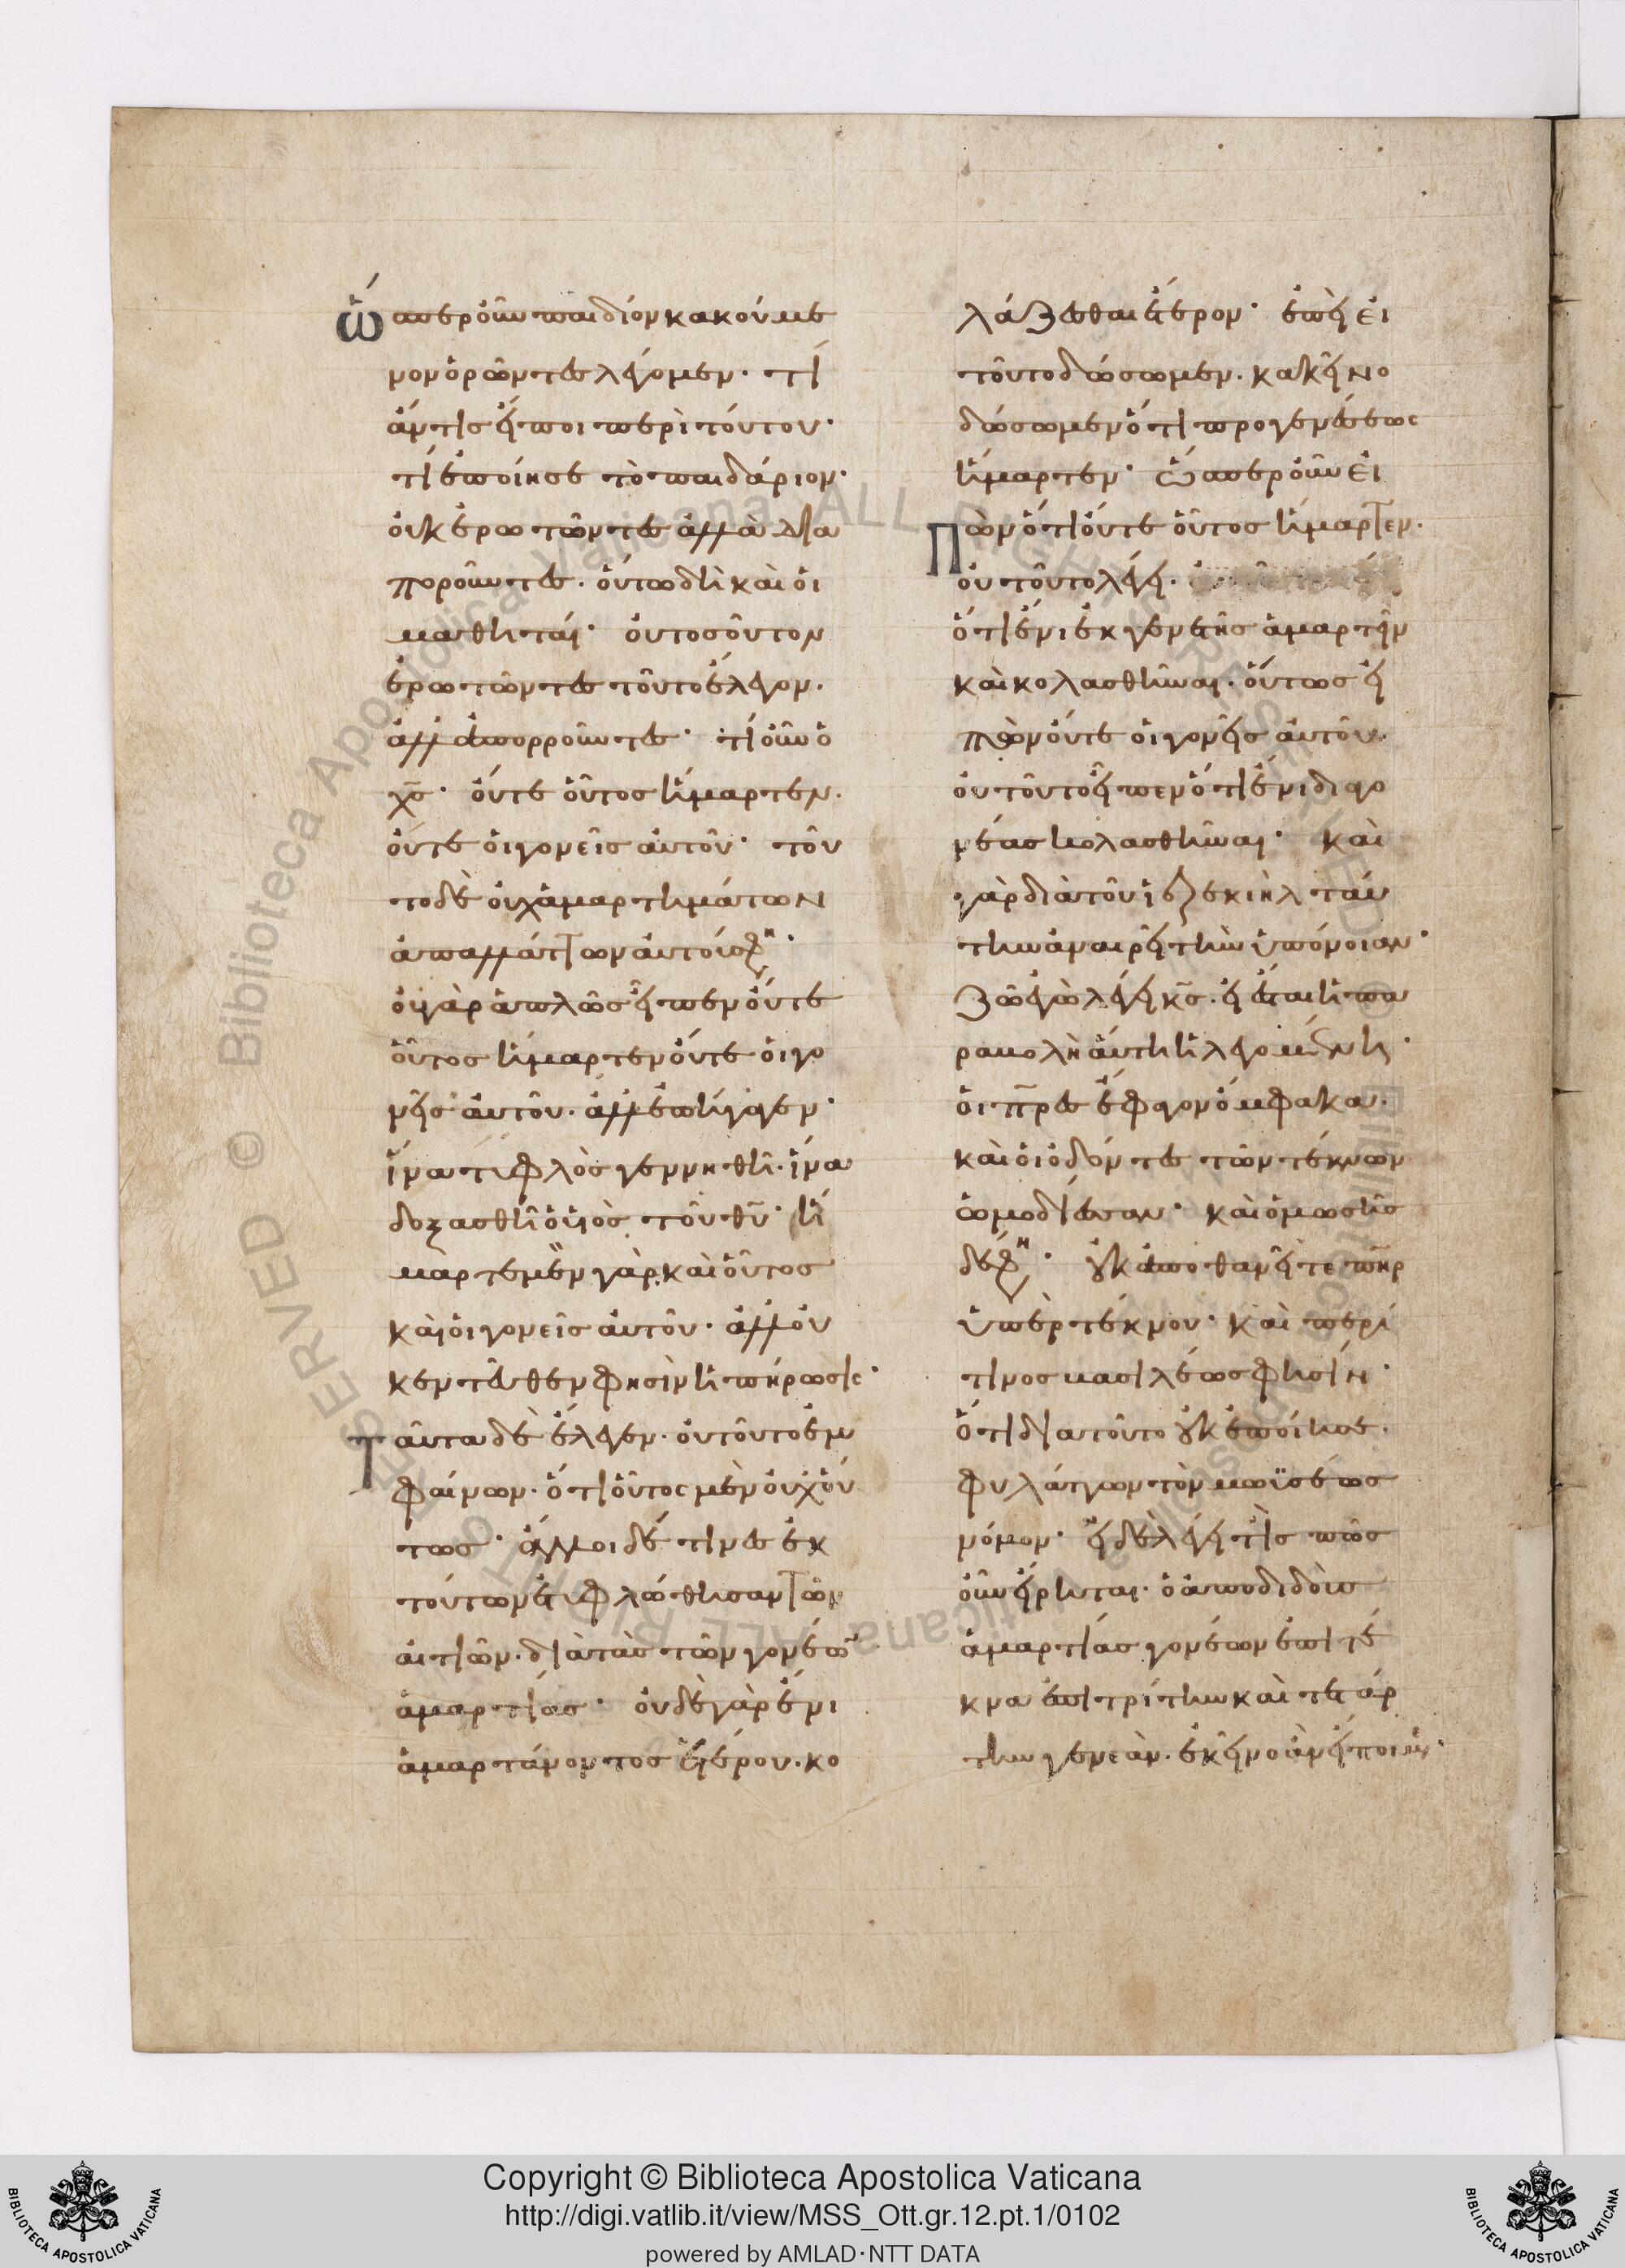 ὥσπερ οὖν παιδίον κακούμε
νον ὁρῶντες λέγομεν· τί
ἄν τις εἴποι περὶ τούτου·
τί ἐποίησε τὸ παιδάριον·
οὐκ ἐρωτῶντες ἀλλὰ δια
ποροῦντες. οὕτω δὴ καὶ οἱ
μαθηταί· οὐ τοσοῦτον
ἐρωτῶντες τοῦτο ἔλεγον.
ἀλλ' ἀπορροῦντες· τί οὖν ὁ
χς· οὔτε οὗτος ἥμαρτεν.
οὔτε οἱ γονεῖς αὐτοῦ· τοῦ
το δὲ οὐχ ἁμαρτημάτων
ἀπαλλάττων αὐτούς φη·
οὐ γὰρ ἁπλῶς εἶπεν οὔτε
οὗτος ἥμαρτεν οὔτε οἱ γο
νεῖς αὐτοῦ. ἀλλ' ἐπήγαγεν·
ἵνα τυφλὸς γεννηθῆ. ἵνα
δοξασθῆ ὁ υἱὸς τοῦ θυ· ἥ
μαρτε μὲν γὰρ καὶ οὗτος
καὶ οἱ γονεῖς αὐτοῦ· ἀλλ' οὐ
κ ἐντεῦθεν φησὶν ἡ πήρωσις·
Ταῦτα δὲ ἔλεγεν. οὐ τοῦτο ἐμ
φαίνων. ὅτι οὗτος μὲν οὐχ οὕ
τως· ἄλλοι δέ τινες ἐκ
τούτων ἐτυφλώθησαν τῶν
αἰτιῶν. διὰ τὰς τῶν γονέω
ἁμαρτίας· οὐδὲ γὰρ ἔνι
ἁμαρτάνοντος ἑτέρου. κο
λάζεσθαι ἕτερον· ἐπεὶ εἰ
τοῦτο δώσωμεν. κακεῖνο
δώσωμεν ὅτι προ γενέσεως
ἥμαρτεν· ὥσπερ οὖν εἰ
πὼν ὅτι οὔτε οὗτος ἥμαρτεν.
οὐ τοῦτο λέγει.
ὅτι ἔνι ἐκ γενετῆς ἁμαρτεῖν
καὶ κολασθῆναι. οὕτως εἰ
πὼν οὔτε οἱ γονεῖς αὐτοῦ.
οὐ τοῦτο εἶπεν ὅτι ἔνι δι γο
νέας κολασθῆναι· καὶ
γὰρ διὰ τοῦ ἰεζεκιὴλ ταύ
την ἀναιρεῖ τὴν ὑπόνοιαν·
ζῶ ἐγὼ λέγει κς. εἰ ἔσται ἡ πα
ραβολὴ αὕτη ἡ λεγομένη·
οἱ πρες ἔφαγον ὄμφακα.
καὶ οἱ ὀδόντες τῶν τέκνων
ὡμωδίασαν· καὶ ὁ μωσῆς
δέ φη· οὐκ ἀποθανεῖτε πηρ
ὑπὲρ τέκνου· καὶ περί
τινος βασιλέως φησίν·
ὅτι δια τοῦτο οὐκ ἐποίησε.
φυλάττων τὸν μωϋσέως
νόμον· εἰ δὲ λέγει τὶς πῶς
οὖν εἴρηται. ὁ ἀποδιδοὺς
ἁμαρτίας γονέων ἐπὶ τέ
κνα ἐπὶ τρίτην καὶ τετάρ
την γενεάν. ἐκεῖνο ἂν εἴποιμεν·
Copyright © Biblioteca Apostolica Vaticana
http://digi.vatlib.it/view/MSS_Ott.gr.12.pt.1/0102
powered by AMLAD·NTT DATA
BIBLIOTECA APOSTOLICA VATICANA
BIBLIOTECA APOSTOLICA VATICANA